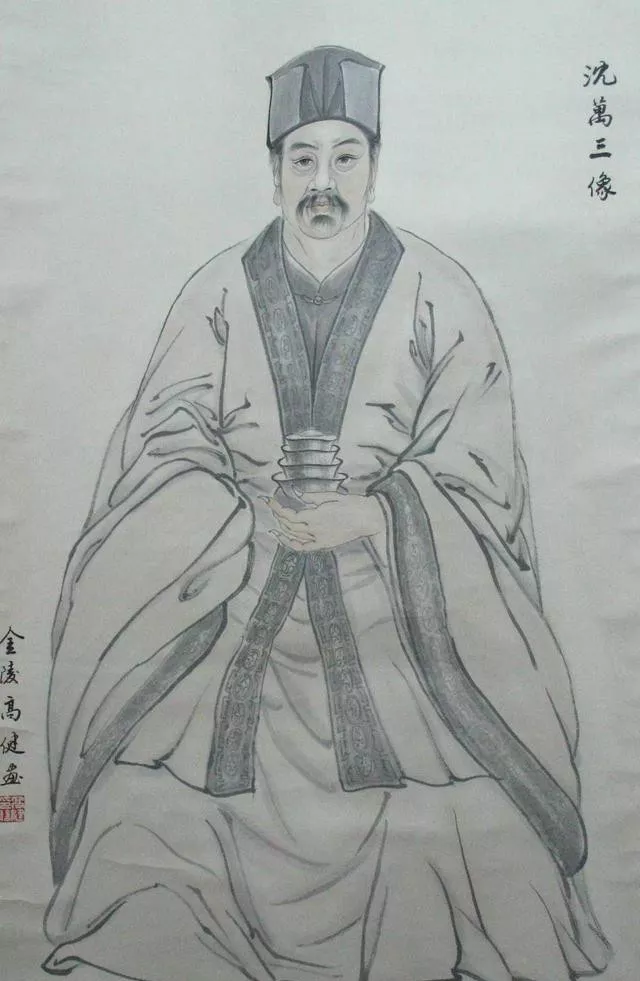 沈萬三像
金陵高健画